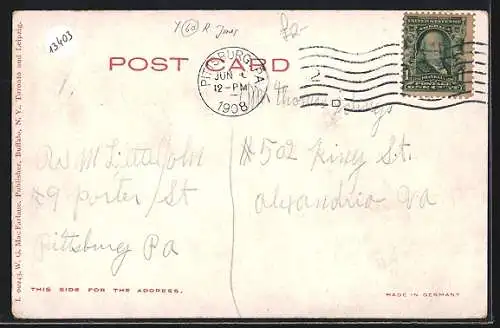 13403
Y (60) R. Jones
UNITED STATES OF AMERICA
1
FRANKLIN
POSTAGE
ONE CENT
POST CARD
PITTSBURG, PA.
JUN
12-PM
1908
2
D
Mr Thomas
R W M Littlejohn
#9 Porter St
Pittsburg Pa
#502 King St.
Alexandria Va
THIS SIDE FOR THE ADDRESS.
MADE IN GERMANY
W. G. MacFarlane, Publisher, Buffalo, N. Y., Toronto and Leipzig.